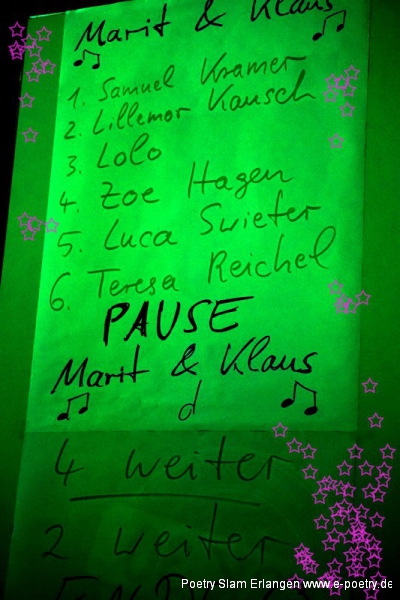 Marit & Klaus
1. Samuel Kramer
2. Lillemor Kausch
3. Lolo
4. Zoe Hagen
5. Luca Swieter
6. Teresa Reichel
PAUSE
Marit & Klaus
d
4 weiter
2 weiter
Poetry Slam Erlangen www.e-poetry.de